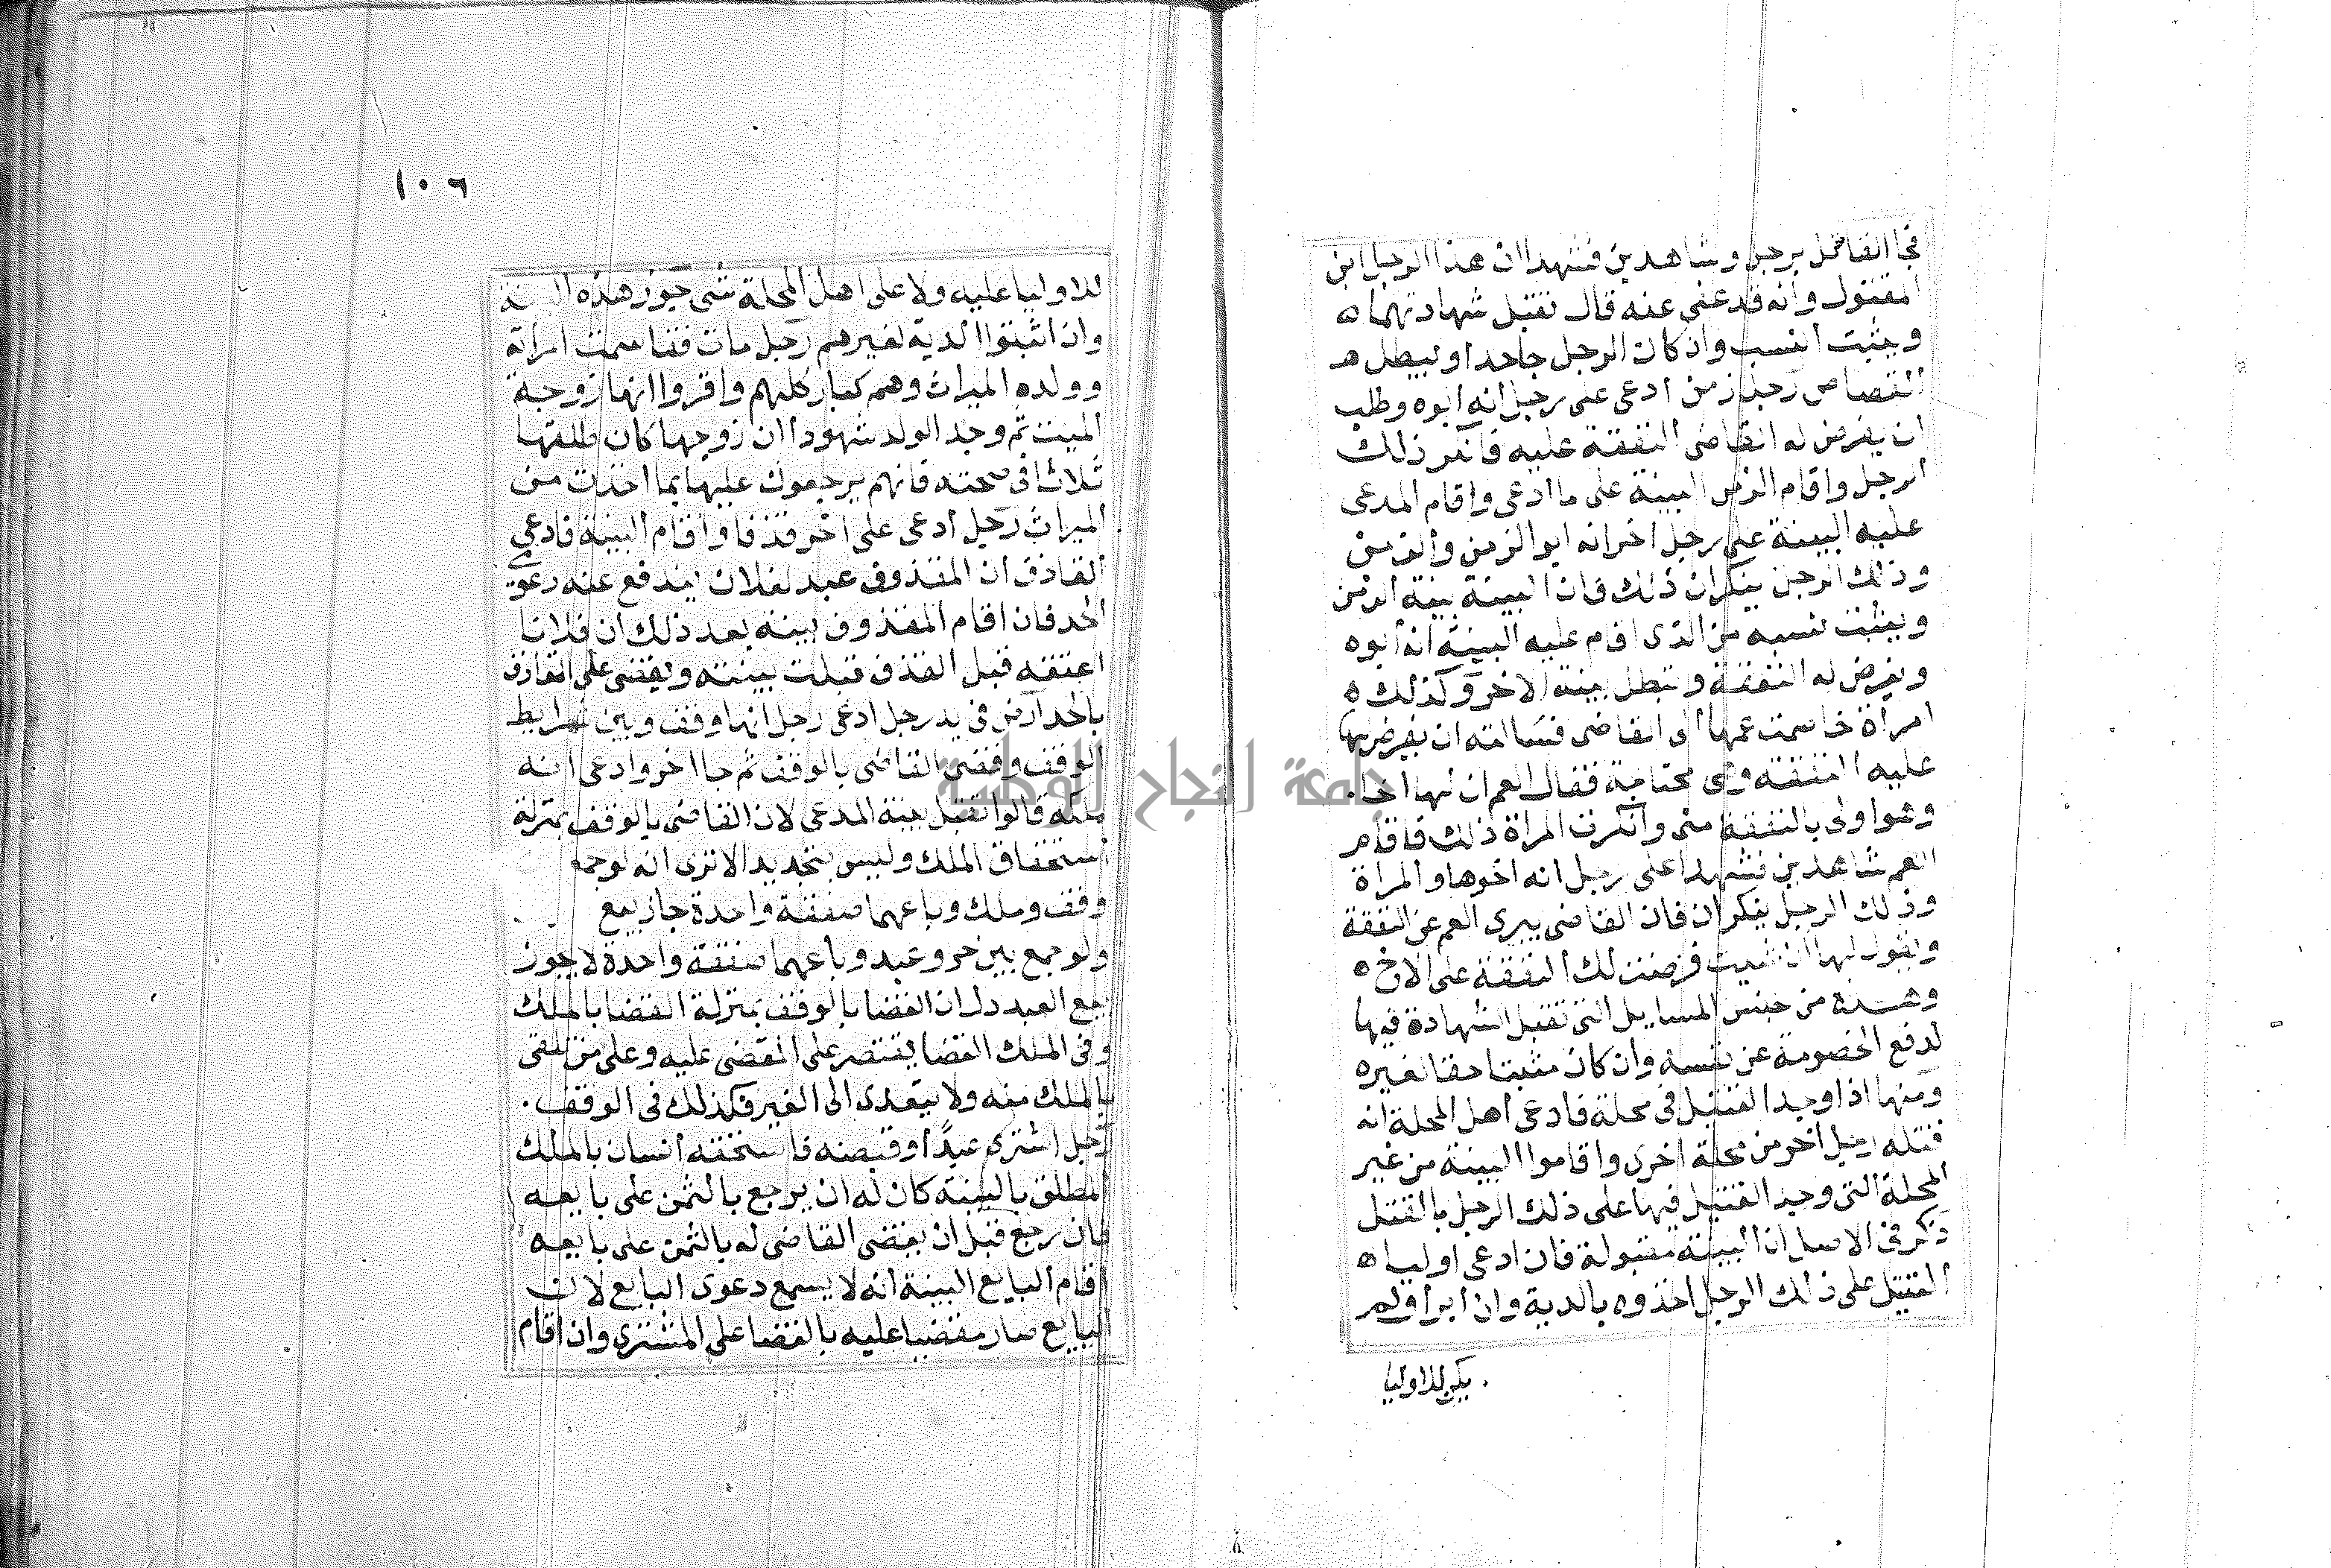 فجا القاتل برجل وشاهدين فشهدا ان هذا الرجل ابن
المقتول وانه قد عفي عنه قال تقبل شهادتهما ه
ويثبت النسب وان كان الرجل جاحدا ويبطل
القصاص رجل زمن ادعى على رجل انه ابوه وطلب
ان يفرض له القاضى النفقة عليه فانكر ذلك
الرجل واقام الزمن البينة على ما ادعى واقام المدعى
عليه البينة على رجل اخر انه ابو الزمن والزمن
وذلك الرجل ينكران ذلك فان البينة بينة الزمن
ويثبت نسبه من الذى اقام عليه البينة انه ابوه
ويفرض له النفقة وتبطل بينة الاخر وكذلك ه
امراة خاصمت عمها الى القاضى فسالته ان يفرض لها
عليه النفقة وهى محتاجة فقال العم ان لها اخا
وهو اولى بالنفقة منى وانكرت المراة ذلك فاقام
العم شاهدين فشهدا على رجل انه اخوها والمراة
وذلك الرجل ينكران فان القاضى يبرى العم عن النفقة
ويقول لها ان شيت فرضت لك النفقة على الاخ ه
وهذه من جنس المسايل التى تقبل الشهادة فيها
لدفع الخصومة عن نفسه وان كان مثبتا حقا لغيره
ومنها اذا وجد القتيل فى محلة فادعى اهل المحلة انه
قتله رجل اخر من محلة اخرى واقاموا البينة من غير
المحلة التى وجد القتيل فيها على ذلك الرجل بالقتل
ذكر فى الاصل ان البينة مقبولة فان ادعى اوليا ه
القتيل على ذلك الرجل اخذوه بالدية وان ابراه لم
يكن للاوليا
١٠٦
للاوليا عليه ولا على اهل المحلة شى جوز هذه البينة
وان اثبتوا الدية لغيرهم رجل مات فقاسمت امراته
وولده الميراث وهم كبار كلهم واقروا انها زوجة
الميت ثم وجد الولد شهودا ان زوجها كان طلقها
ثلاثا فى صحته فانهم يرجعون عليها بما اخذت من
الميراث رجل ادعى على اخر قذفا واقام البينة فادعى
القاذف ان المقذوف عبد لفلان يندفع عنه دعوى
الحد فان اقام المقذوف بينه بعد ذلك ان فلانا
اعتقه قبل القذف قبلت بينته ويقضى على القاذف
بالحد ارض فى يد رجل ادعى رجل انها وقف وبين شرايط
الوقف وقضى القاضى بالوقف ثم جا اخر وادعى انه
ملكه قالوا تقبل بينة المدعى لان القاضى بالوقف بمنزلة
استحقاق الملك وليس بتجديد الا ترى انه لو جمع
وقف وملك وباعهما صفقة واحدة جاز بيع
ولو جمع بين حر وعبد وباعهما صفقة واحدة لا يجوز
بيع العبد دل ان القضا بالوقف بمنزلة القضا بالملك
وفى الملك القضا يقتصر على المقضى عليه وعلى من تلقى
بالملك منه ولا يتعدى الى الغير فكذلك فى الوقف.
رجل اشترى عبدا وقبضه فاستحقه انسان بالملك
المطلق بالبينة كان له ان يرجع بالثمن على بايعه
فان رجع قبل ان يقضى القاضى له بالثمن على بايعه
اقام البايع البينة انه لا يسمع دعوى البايع لان
البايع صار مقضيا عليه بالقضا على المشترى وان اقام